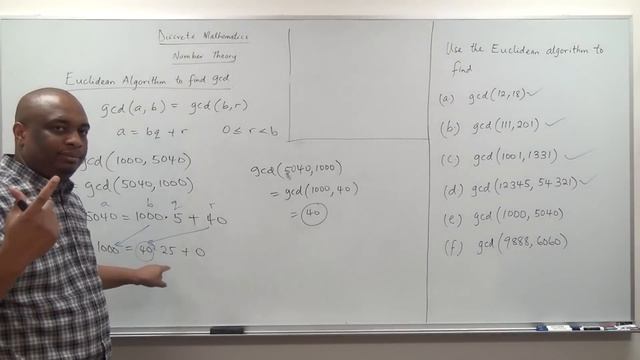 Discrete Mathematics
Number Theory
Euclidean Algorithm to find gcd
gcd(a,b) = gcd(b,r)
a = bq + r 0 ≤ r < b
gcd(1000, 5040)
= gcd(5040, 1000)
a b q r
5040 = 1000·5 + 40
1000 = 40·25 + 0
gcd(5040, 1000)
= gcd(1000, 40)
= 40
Use the Euclidean algorithm to
find
(a) gcd(12, 18) ✓
(b) gcd(111, 201) ✓
(c) gcd(1001, 1331) ✓
(d) gcd(12345, 54321) ✓
(e) gcd(1000, 5040)
(f) gcd(9888, 6060)